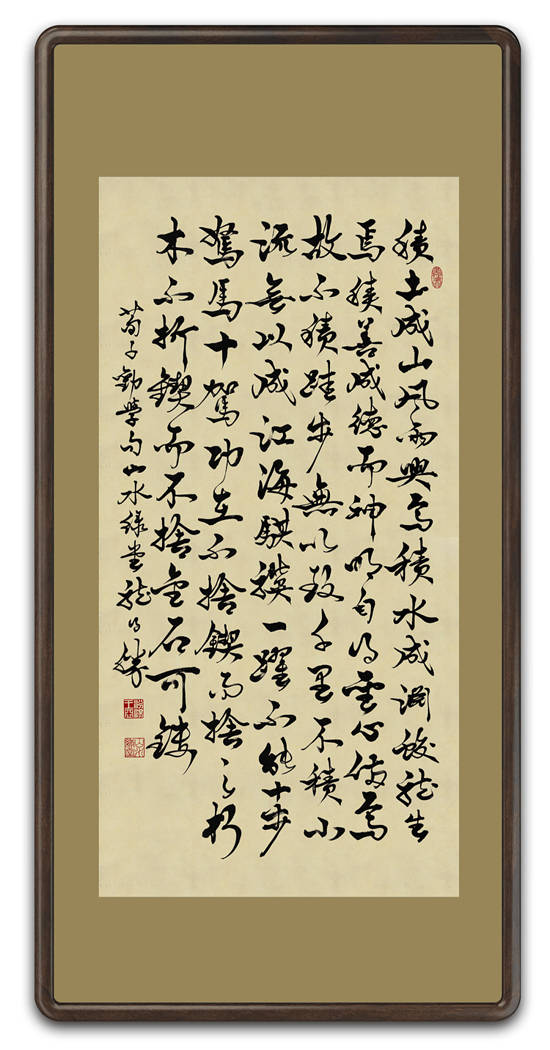 積土成山風雨興焉積水成淵蛟龍生
焉積善成德而神明自得聖心備焉
故不積跬步無以致千里不積小
流無以成江海騏驥一躍不能十步
駑馬十駕功在不捨鍥而捨之朽
木不折鍥而不捨金石可鏤
荀子勸學句山水緣堂龍